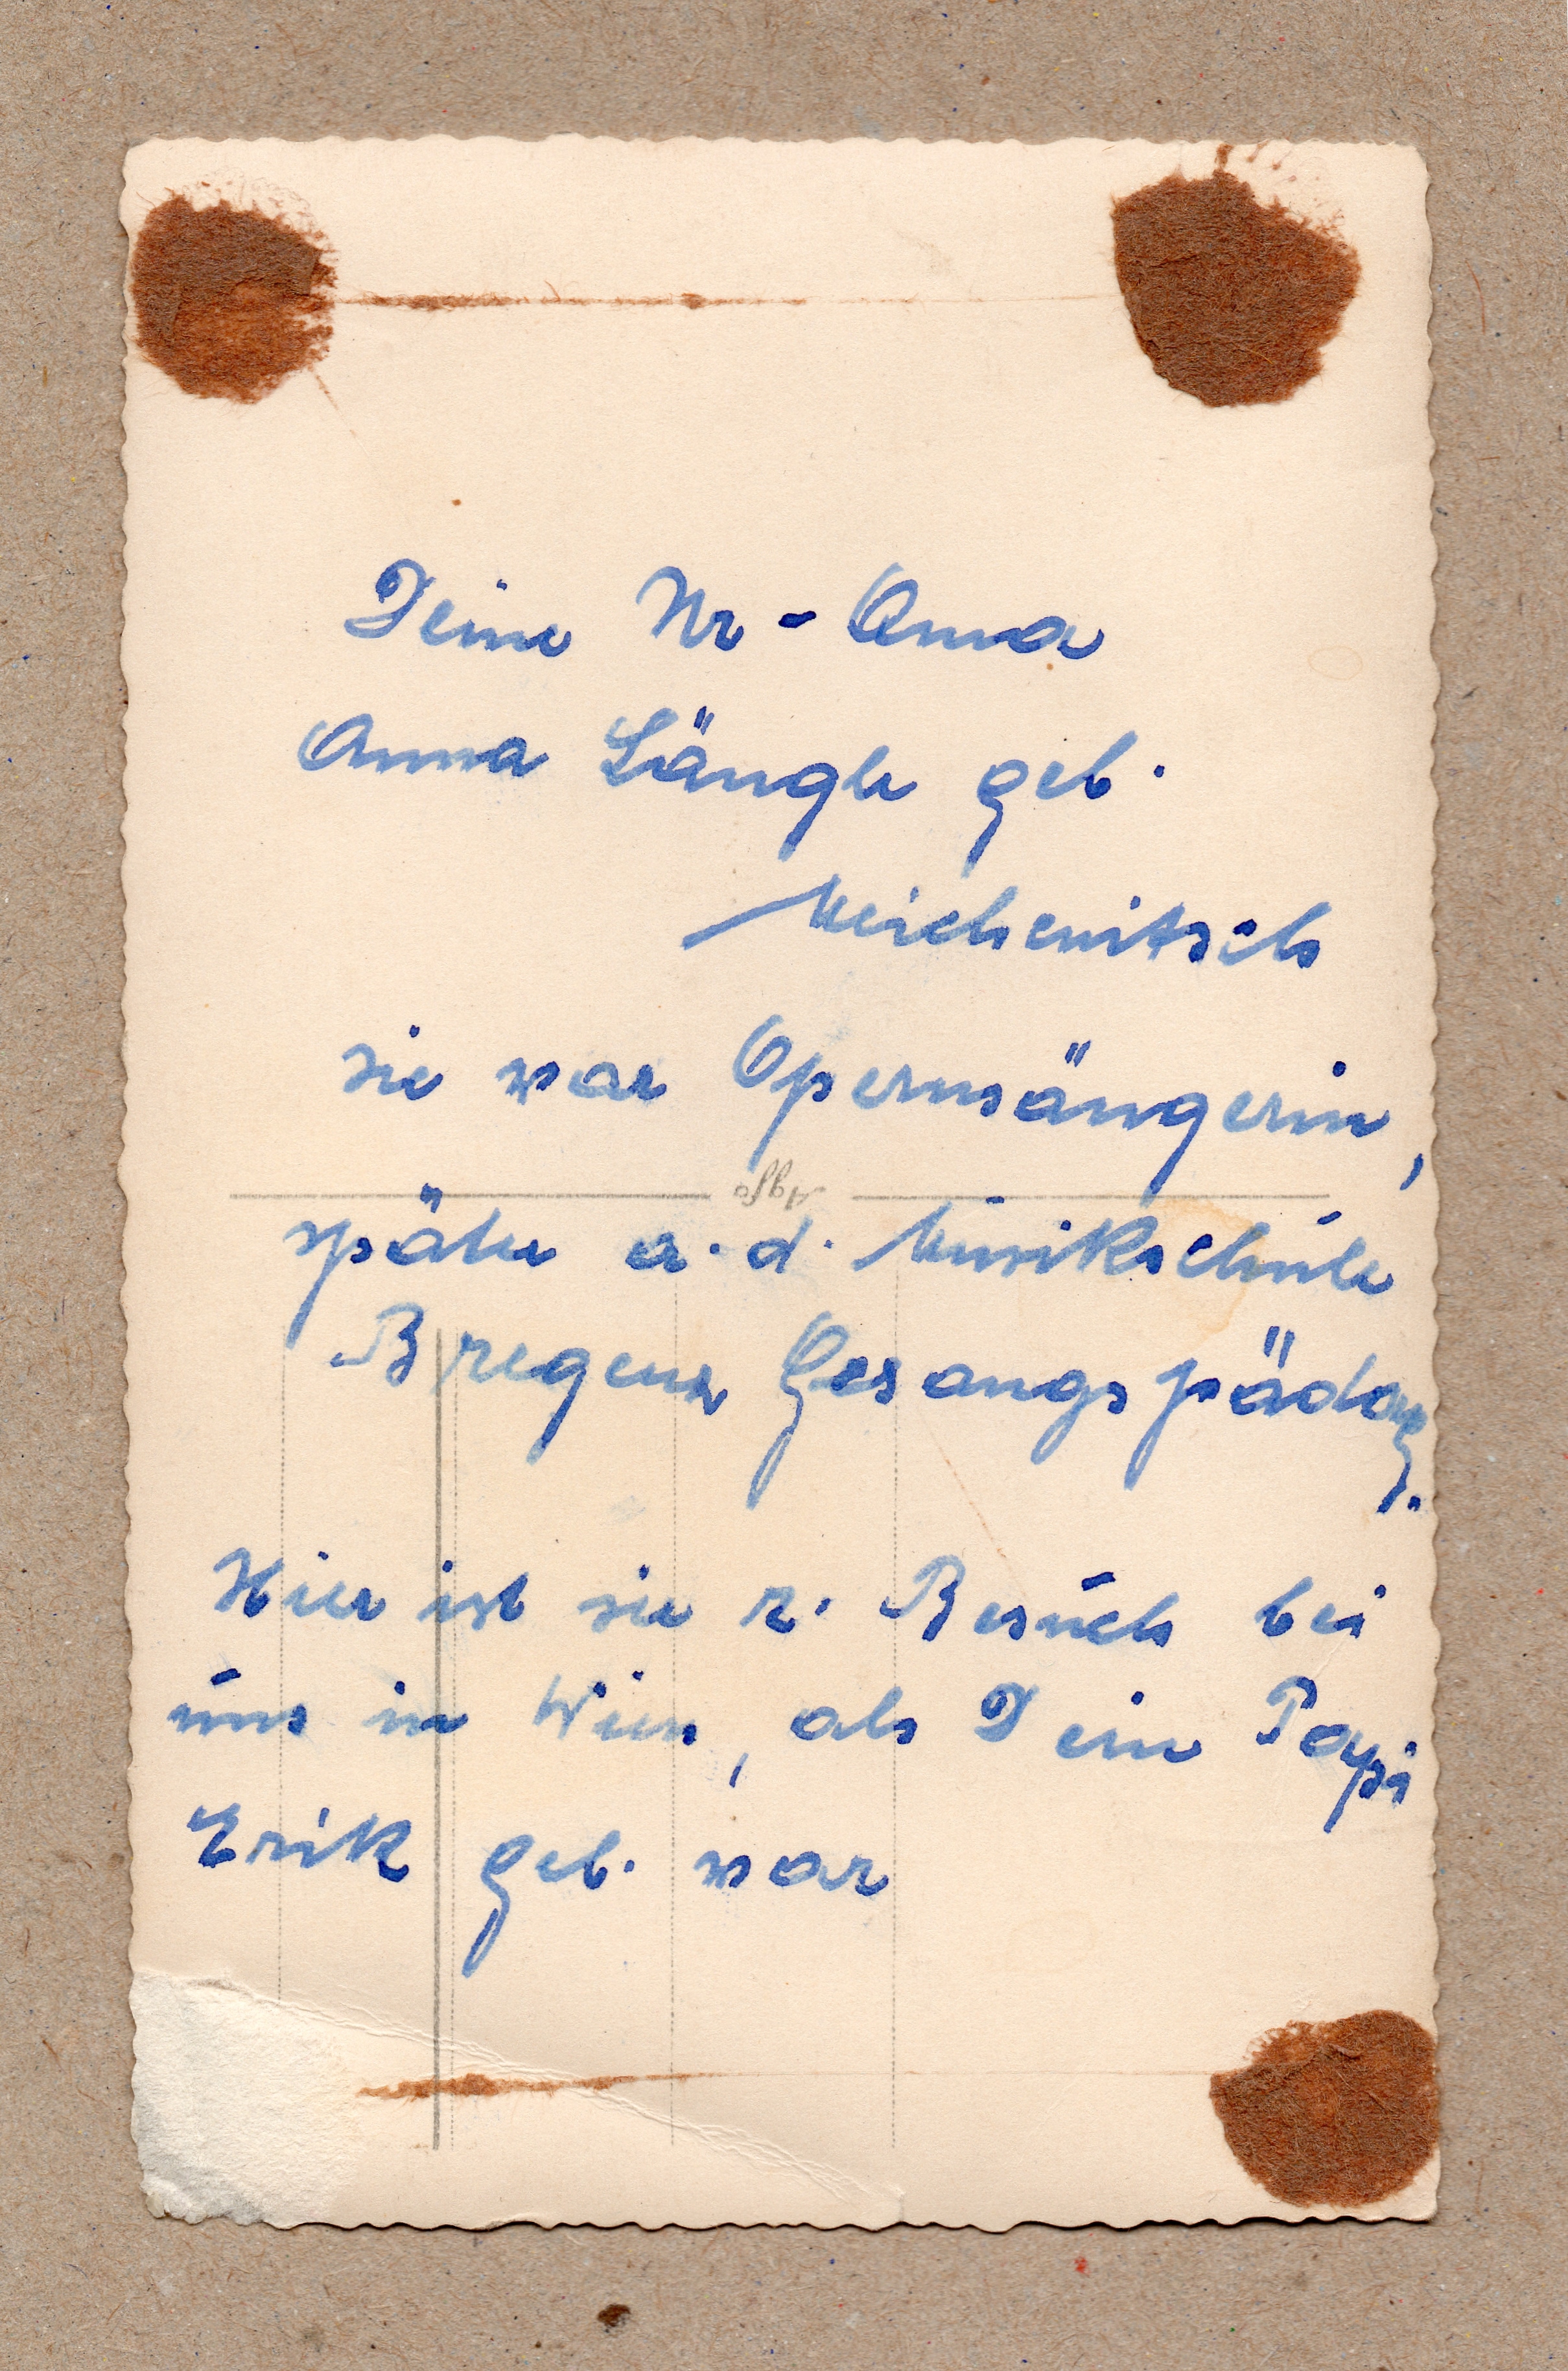 Deine Ur-Oma
Anna Längle geb.
Meichenitsch
sie war Opernsängerin,
Agfa
später a. d. Musikschule
Bregenz Gesangspädag.
Hier ist sie z. Besuch bei
uns in Wien, als Dein Papi
Erik geb. war